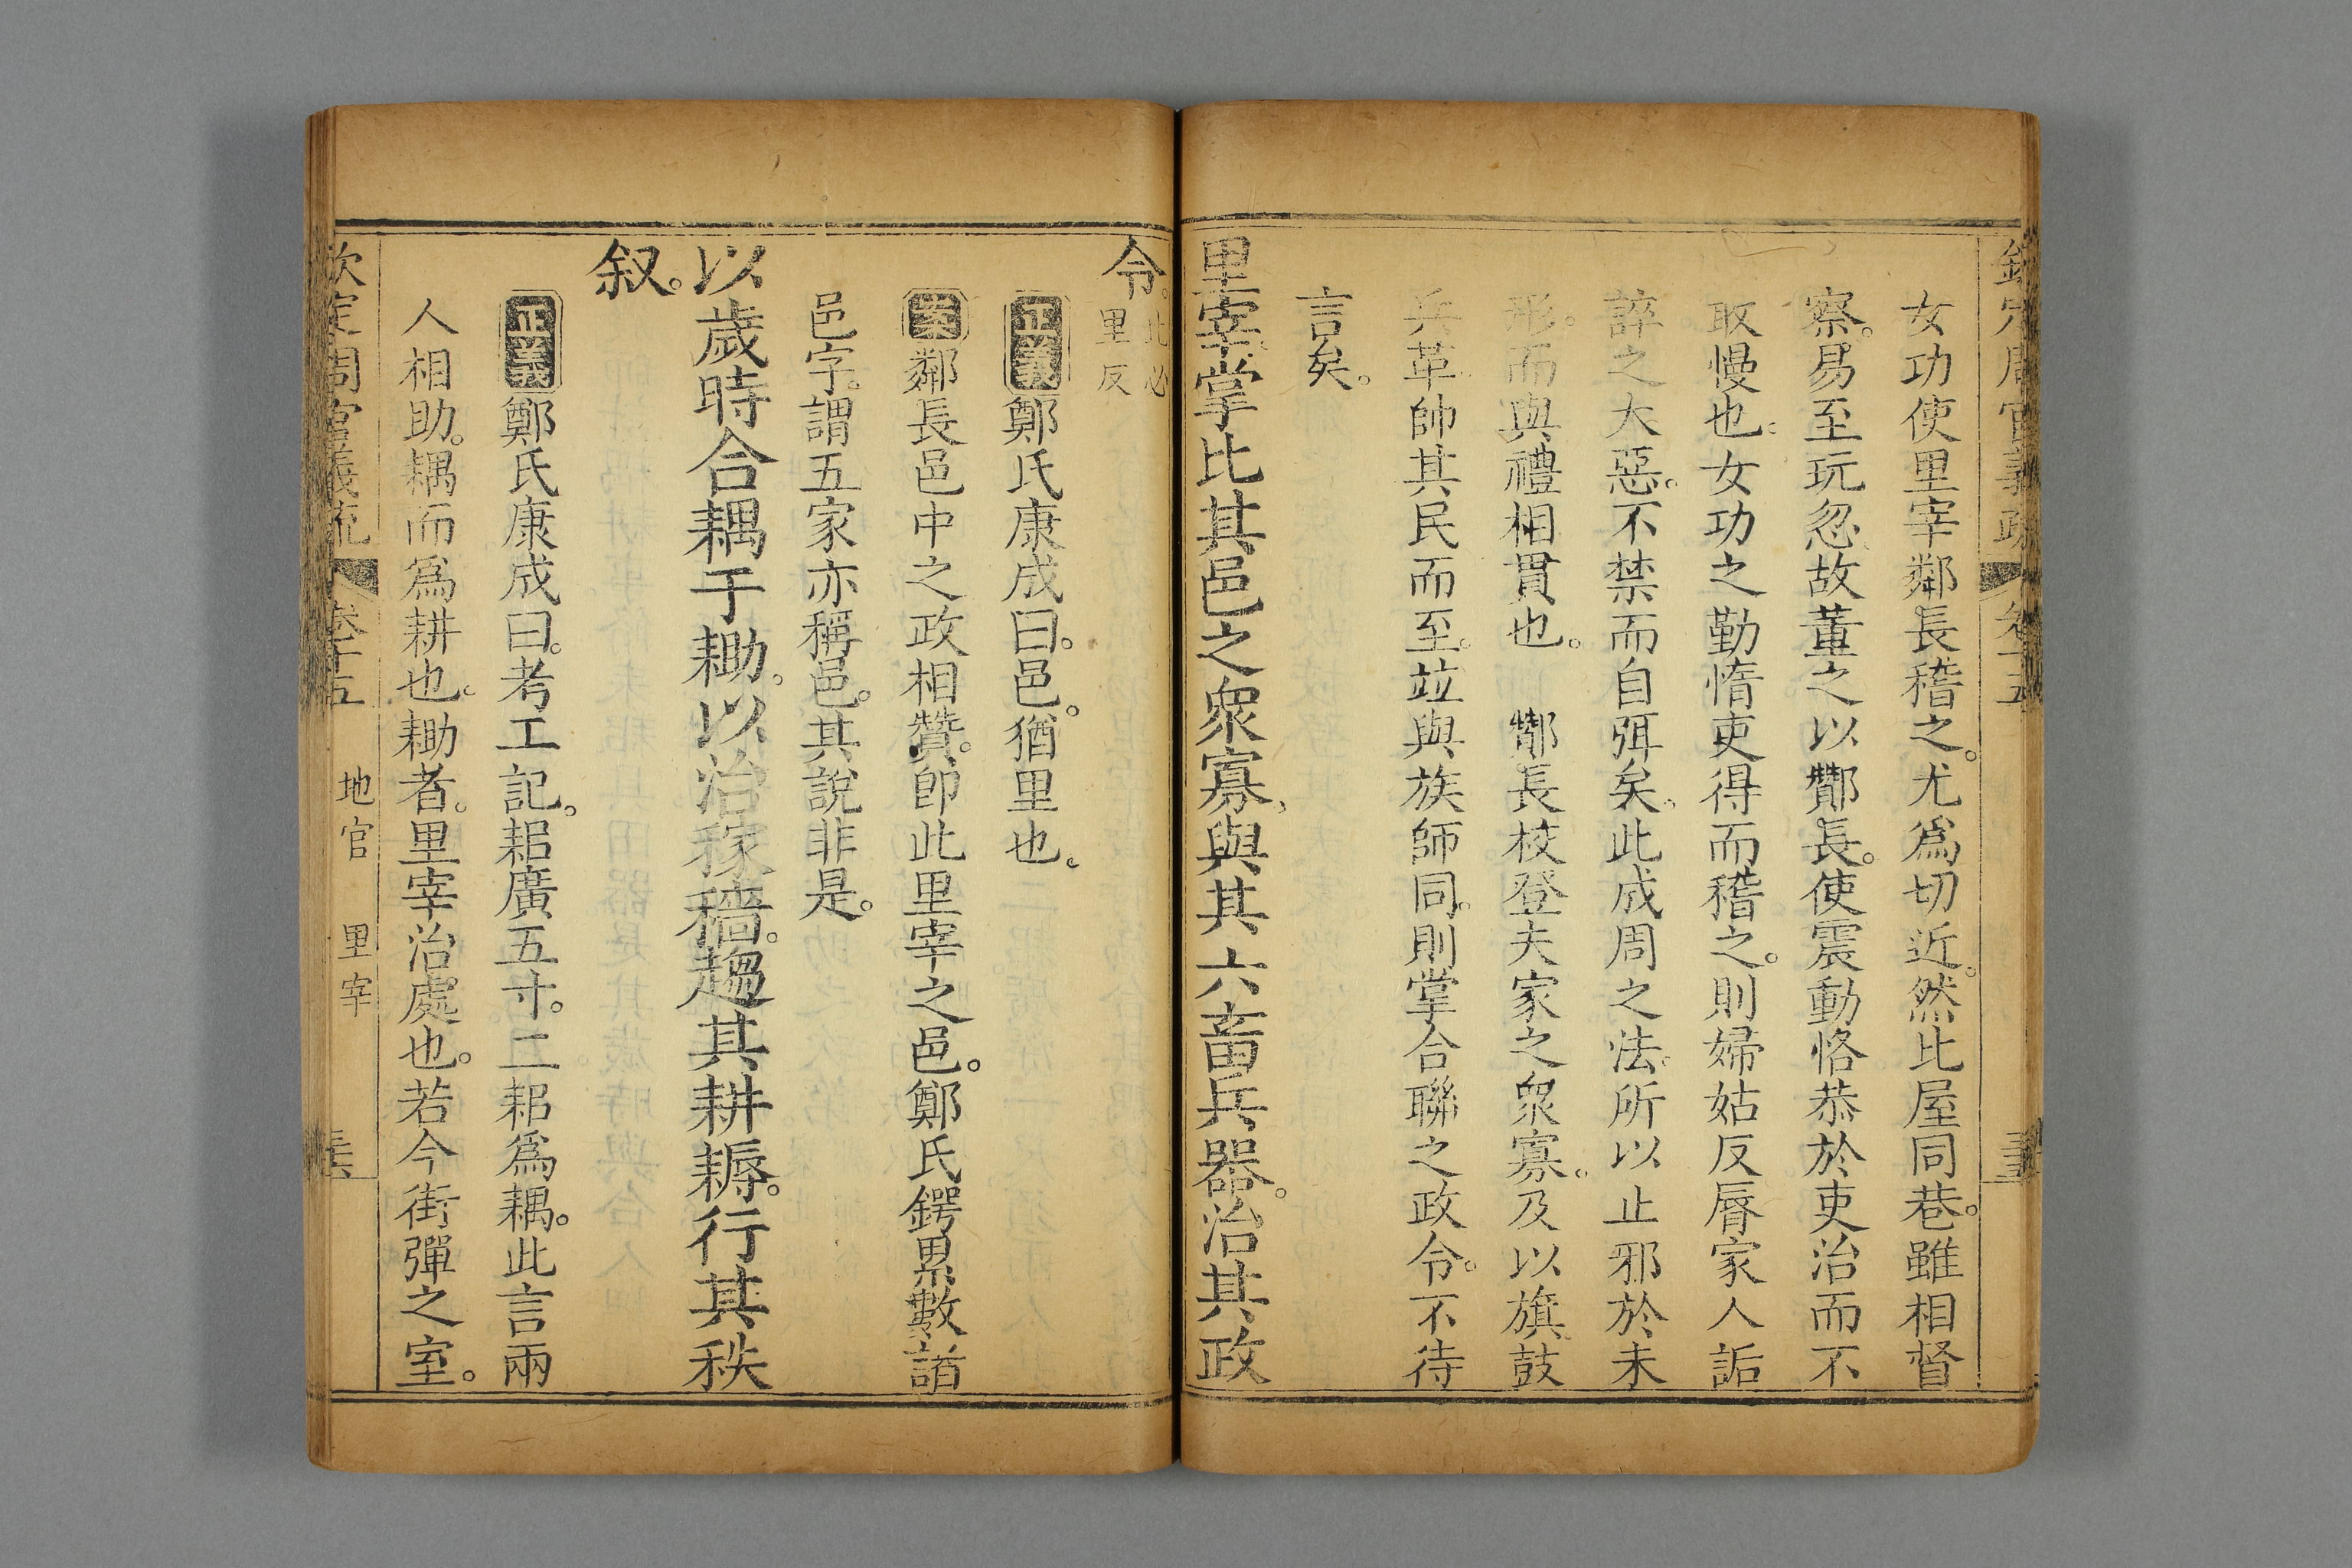 欽定周官義疏 卷十五
女功使里宰鄰長稽之。尤爲切近。然比屋同巷。雖相督
察。易至玩忽。故董之以酇長。使震動恪恭於吏治而不
敢慢也。女功之勤惰吏得而稽之。則婦姑反脣家人詬
誶之大惡。不禁而自弭矣。此成周之法。所以止邪於未
形。而與禮相貫也。 酇長校登夫家之衆寡。及以旗鼓
兵革帥其民而至。竝與族師同。則掌合聯之政令。不待
言矣。
里宰掌比其邑之衆寡與其六畜兵器。治其政
令。比必里反
正義鄭氏康成曰。邑。猶里也。
案鄰長邑中之政相贊。卽此里宰之邑。鄭氏鍔累數諸
邑字。謂五家亦稱邑。其說非是。
以歲時合耦于耡。以治稼穡。趨其耕耨。行其秩
叙。
正義鄭氏康成曰。考工記。耜廣五寸。二耜爲耦。此言兩
人相助。耦而爲耕也。耡者。里宰治處也。若今街彈之室。
欽定周官義疏 卷十五 地官 里宰